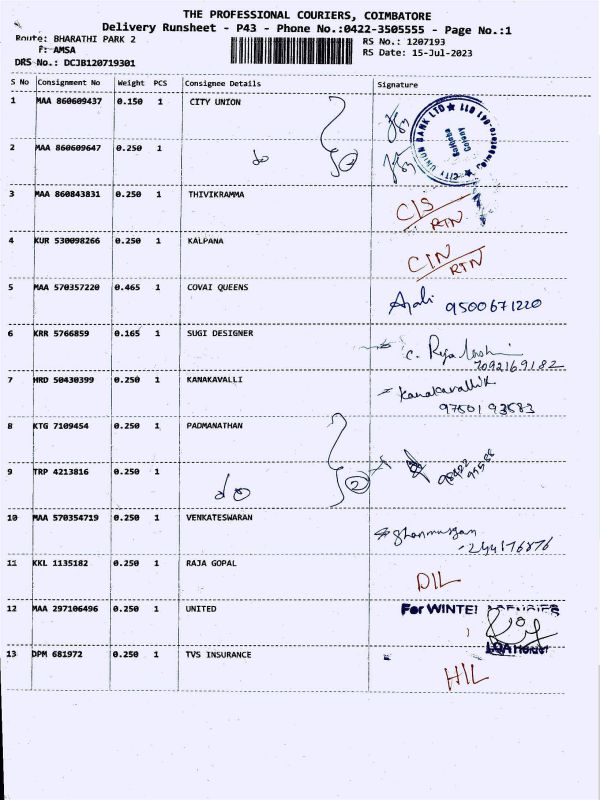 THE PROFESSIONAL COURIERS, COIMBATORE
Delivery Runsheet - P43 - Phone No.:0422-3505555 - Page No.:1
Route: BHARATHI PARK 2
RS No.: 1207193
F: AMSA
RS Date: 15-Jul-2023
DRS No.: DCJB120719301
S No Consignment No Weight PCS Consignee Details Signature
1 MAA 860609437 0.150 1 CITY UNION
CITY UNION BANK LTD
Saibaba
Colony
2 MAA 860609647 0.250 1 do 2
3 MAA 860843831 0.250 1 THIVIKRAMMA C/S
RTN
4 KUR 530098266 0.250 1 KALPANA C/N
RTN
5 MAA 570357220 0.465 1 COVAI QUEENS Anjali 9500671220
6 KRR 5766859 0.165 1 SUGI DESIGNER
7092169182
7 HRD 50430399 0.250 1 KANAKAVALLI Kanakavallik
9750193583
8 KTG 7109454 0.250 1 PADMANATHAN
9 TRP 4213816 0.250 1 do 2
10 MAA 570354719 0.250 1 VENKATESWARAN
11 KKL 1135182 0.250 1 RAJA GOPAL D/L
12 MAA 297106496 0.250 1 UNITED For
13 DPM 681972 0.250 1 TVS INSURANCE H/L